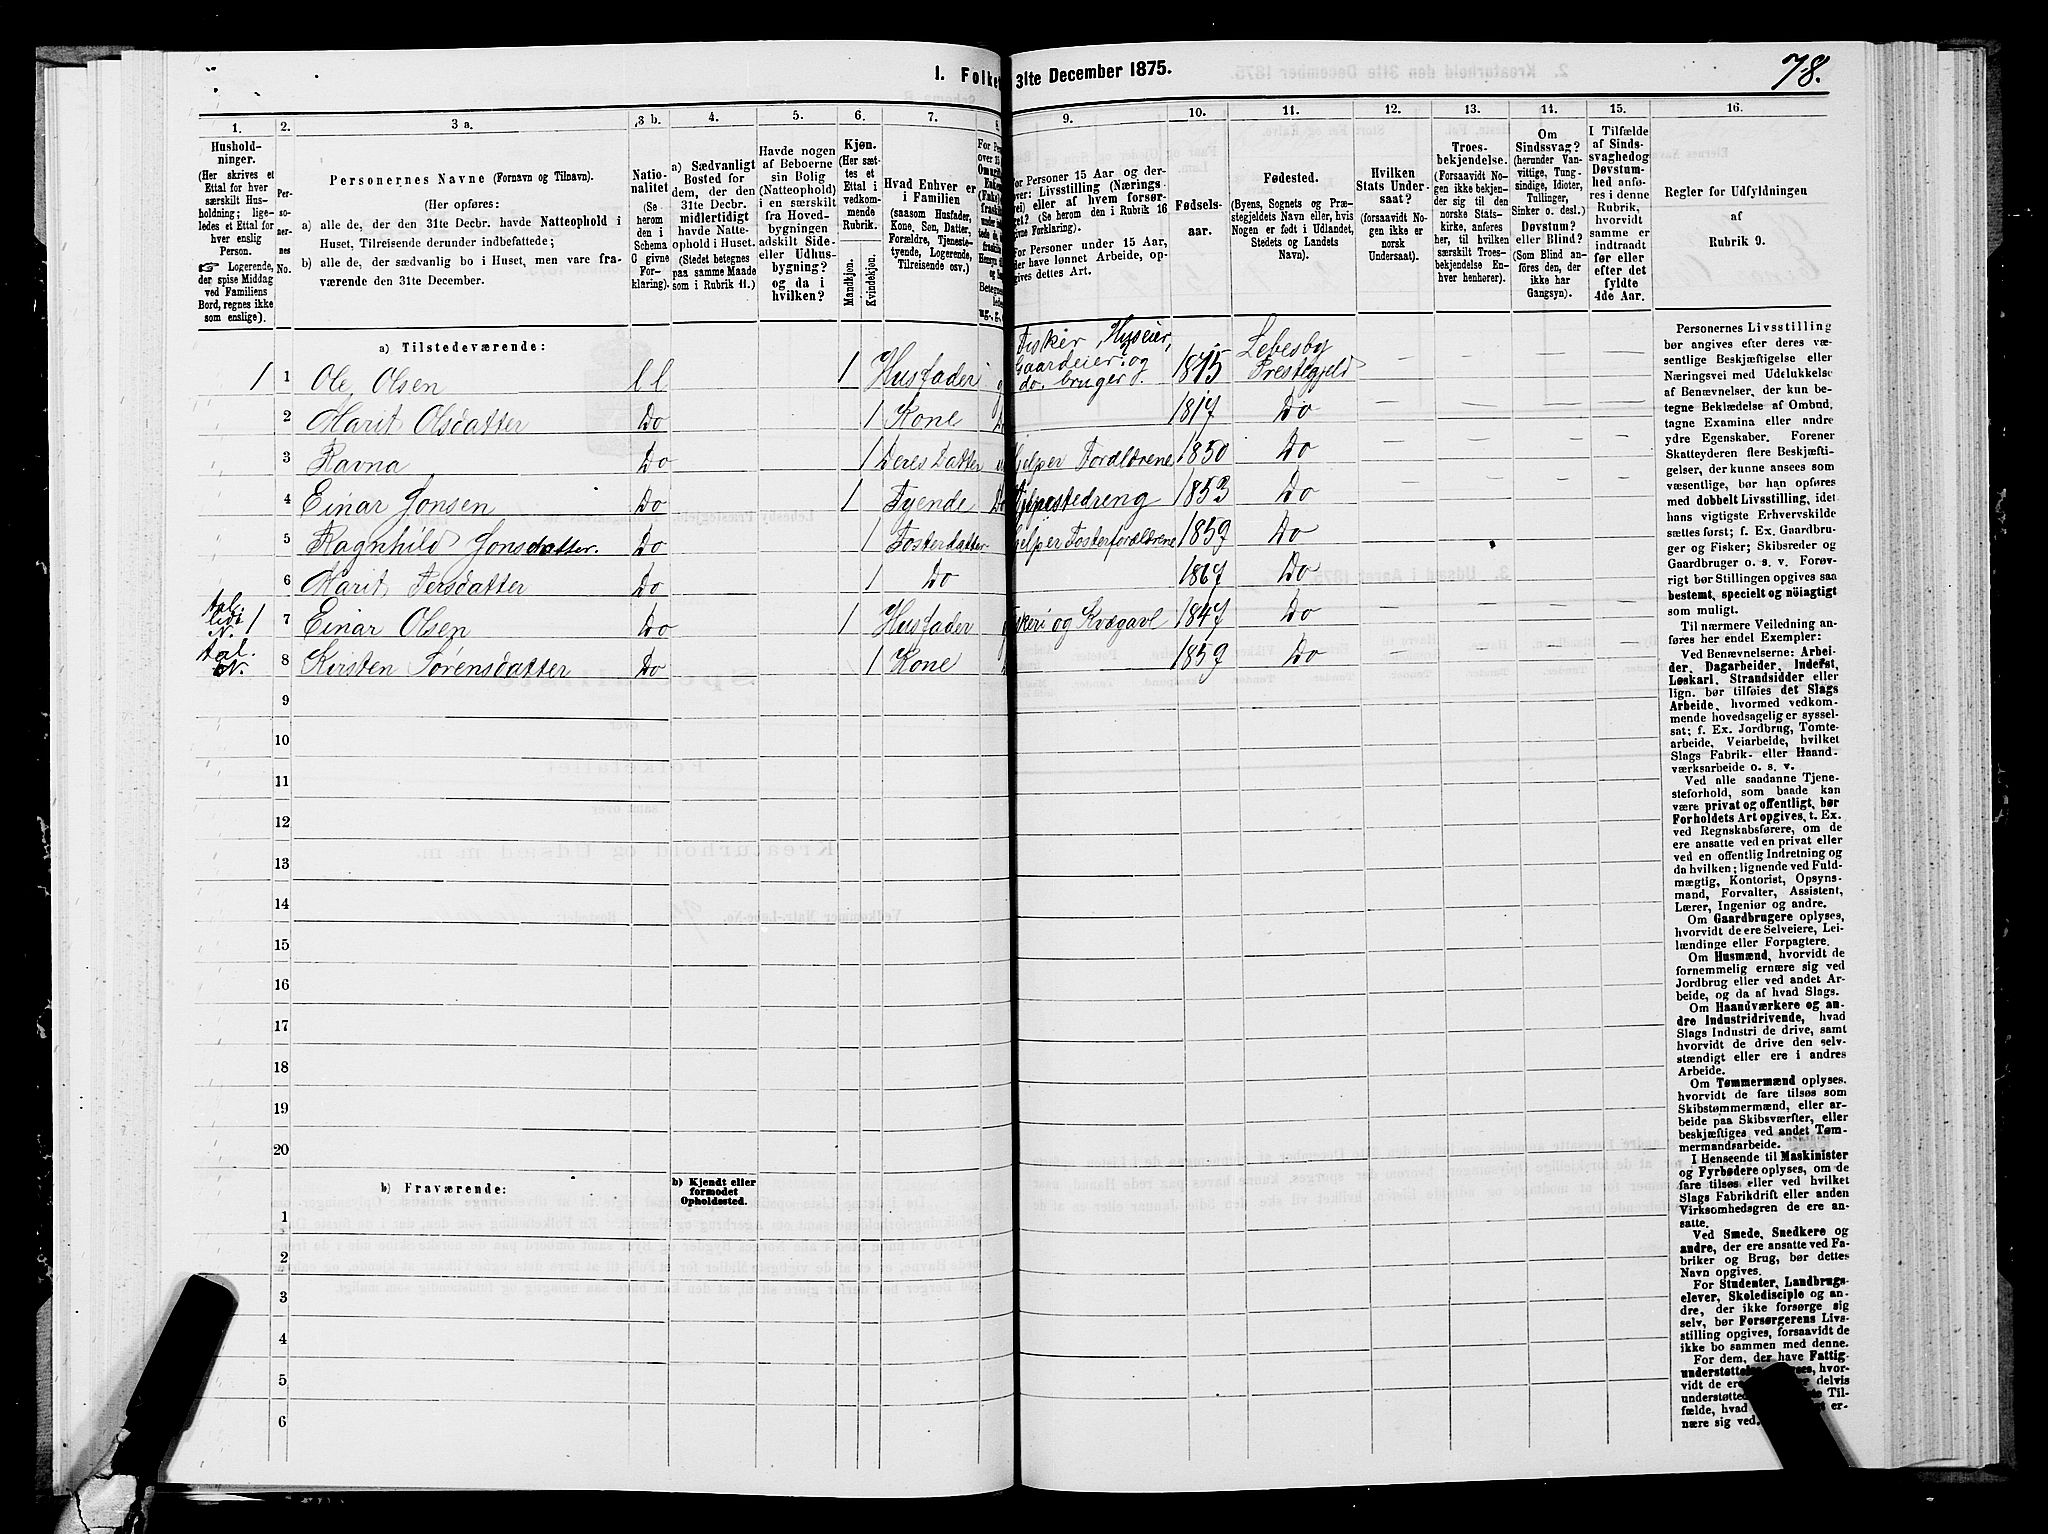 78.
1. Folke
31te December 1875.
1.
2.
3 a.
3 b.
4.
5.
6.
7.
8.
9.
10.
11.
12.
13.
14.
15.
16.
Hushold-
ninger.
(Her skrives et
Ettal for hver
særskilt Hus-
holdning; lige-
ledes et Ettal for
hver enslig
Person.
☞ Logerende,
der spise Middag
ved Familiens
Bord, regnes ikke
som enslige).
Per-
so-
ner-
nes
No.
Personernes Navne (Fornavn og Tilnavn).
(Her opføres:
a) alle de, der den 31te Decbr. havde Natteophold i
Huset, Tilreisende derunder indbefattede;
b) alle de, der sædvanlig bo i Huset, men vare fra-
værende den 31te December.
Natio-
nalitet
(Se
herom
den i
Schema
C givne
For-
klaring).
a) Sædvanligt
Bosted for
dem, der den
31te Decbr.
midlertidigt
havde Natte-
ophold i Huset.
(Stedet betegnes
paa samme Maade
som i Rubrik 11.)
Havde nogen
af Beboerne
sin Bolig
(Natteophold)
i en særskilt
fra Hoved-
bygningen
adskilt Side-
eller Udhus-
bygning?
og da i
hvilken?
Kjøn.
(Her sæt-
tes et
Ettal i
vedkom-
mende
Rubrik.
Mandkjøn.
Kvindekjøn.
Hvad Enhver er
i Familien
(saasom Husfader,
Kone, Søn, Datter,
Forældre, Tjeneste-
tyende, Logerende,
Tilreisende osv.)
For Personer 15 Aar og der-
over: Livsstilling (Nærings
vei) eller af hvem forsør-
get? (Se herom den i Rubrik 16
givne Forklaring).
For Personer under 15 Aar,
der have lønnet Arbeide, op-
gives dettes Art.
Fødsels-
aar.
Fødested.
(Byens, Sognets og Præ-
stegjeldets Navn eller, hvis
Nogen er født i Udlandet,
Stedets og Landets
Navn).
Hvilken
Stats Under-
saat?
(forsaavidt No-
gen ikke er
norsk
Undersaat).
Troes-
bekjendelse.
(Forsaavidt No-
gen ikke bekjen-
der sig til den
norske Stats-
kirke, anføres
her, til hvilken
særskilt Troes-
bekjendelse En-
hver henhører).
Om
Sindssvag?
(herunder Van-
vittige, Tung-
sindige, Idioter,
Tullinger,
Sinker o. desl.)
Døvstum?
eller Blind?
(Som Blind an-
føres den, der
ikke har
Gangsyn).
I Tilfælde
af Sinds-
svaghedog
Døvstum-
hed anfø-
res i denne
Rubrik,
hvorvidt
samme er
indtraadt
før eller
efter det
fyldte
4de Aar.
Regler for Udfyldningen
af
Rubrik 9.
a) Tilstedeværende:
1 1 Ole Olsen l l 1 Husfader Fisker, Huseier, Gaardeier og do. bruger 1815 Lebesby Prestegjeld
2 Marit Olsdatter Do 1 Kone 1817 Do
3 Ravna Do 1 Deres Datter Hjelper Forældrene 1850 Do
4 Einar Jonsen Do 1 Tyende 1853 Do
5 Ragnhild Jonsdatter. Do 1 Fosterdatter hjelper Fosterforældrene 1859 Do
6 Marit Persdatter Do 1 Do 1867 Do
1 7 Einar Olsen Do 1 Husfader Fiskeri og Kvægavl 1847 Do
8 Kirsten Sørensdatter Do 1 Kone 1859 Do
9
10
11
12
13
14
15
16
17
18
19
20
b) Fraværende:
b) Kjendt eller
formodet
Opholdssted.
1
2
3
4
5
6
Personernes Livsstilling
bør angives efter deres væ-
sentlige Beskjæftigelse eller
Næringsvei med Udelukkelse
af Benævnelser, der kun be-
tegne Beklædelse af Ombud,
tagne Examina eller andre
ydre Egenskaber. Forener
Skatteyderen flere Beskjæfti-
gelser, der kunne ansees som
væsentlige, bør han opføres
med dobbelt Livsstilling, idet
hans vigtigste Erhvervskilde
sættes først; f. Ex. Gaardbru-
ger og Fisker; Skibsreder og
Gaardbruger o. s. v. Forøv-
rigt bør Stillingen opgives saa
bestemt, specielt og nöiagtigt
som muligt.
Til nærmere Veiledning an-
føres her endel Exempler:
Ved Benævnelserne: Arbei-
der, Dagarbeider, Inderst,
Løskarl, Strandsidder eller
lign. bør tilføies det Slags
Arbeide, hvormed vedkom-
mende hovedsagelig er syssel-
sat; f. Ex. Jordbrug, Tomte-
arbeide, Veiarbeide, hvilket
Slags Fabrik- eller Haand-
værksarbeide o. s. v.
Ved alle saadanne Tjene-
steforhold, som baade kan
være privat og offentligt, bør
Forholdets Art opgives, t. Ex.
ved Regnskabsførere, om de
ere ansatte ved en privat eller
ved en offentlig Indretning og
da hvilken; lignende ved Fuld-
mægtig, Kontorist, Opsyns-
mand, Forvalter, Assistent,
Lærer, Ingeniør og andre.
Om Gaardbrugere oplyses,
hvorvidt de ere Selveiere, Lei-
lændinge eller Forpagtere.
Om Husmænd, hvorvidt de
fornemmelig ernære sig ved
Jordbrug eller ved andet Ar-
beide, og da af hvad Slags.
Om Haandværkere og an-
dre Industridrivende, hvad
Slags Industri de drive, samt
hvorvidt de drive den selv-
stændigt eller ere i andres
Arbeide.
Om Tømmermænd oplyses,
hvorvidt de fare tilsøs som
Skibstømmermænd, eller ar-
beide paa Skibsværfter, eller
beskjæftiges ved andet Tøm-
mermandsarbeide.
I Henseende til Maskinister
og Fyrbødere oplyses, om de
fare tilsøs eller ved hvilket
Slags Fabrikdrift eller anden
Virksomhedsgren de ere an-
satte.
Ved Smede, Snedkere og
andre, der ere ansatte ved Fa-
briker og Brug, bør dettes
Navn opgives.
For Studenter, Landbrugs-
elever, Skoledisciple og an-
dre, der ikke forsørge sig
selv, bør Forsørgerens Livs-
stilling opgives, forsaavidt de
ikke bo sammen med denne.
For dem, der have Fattig-